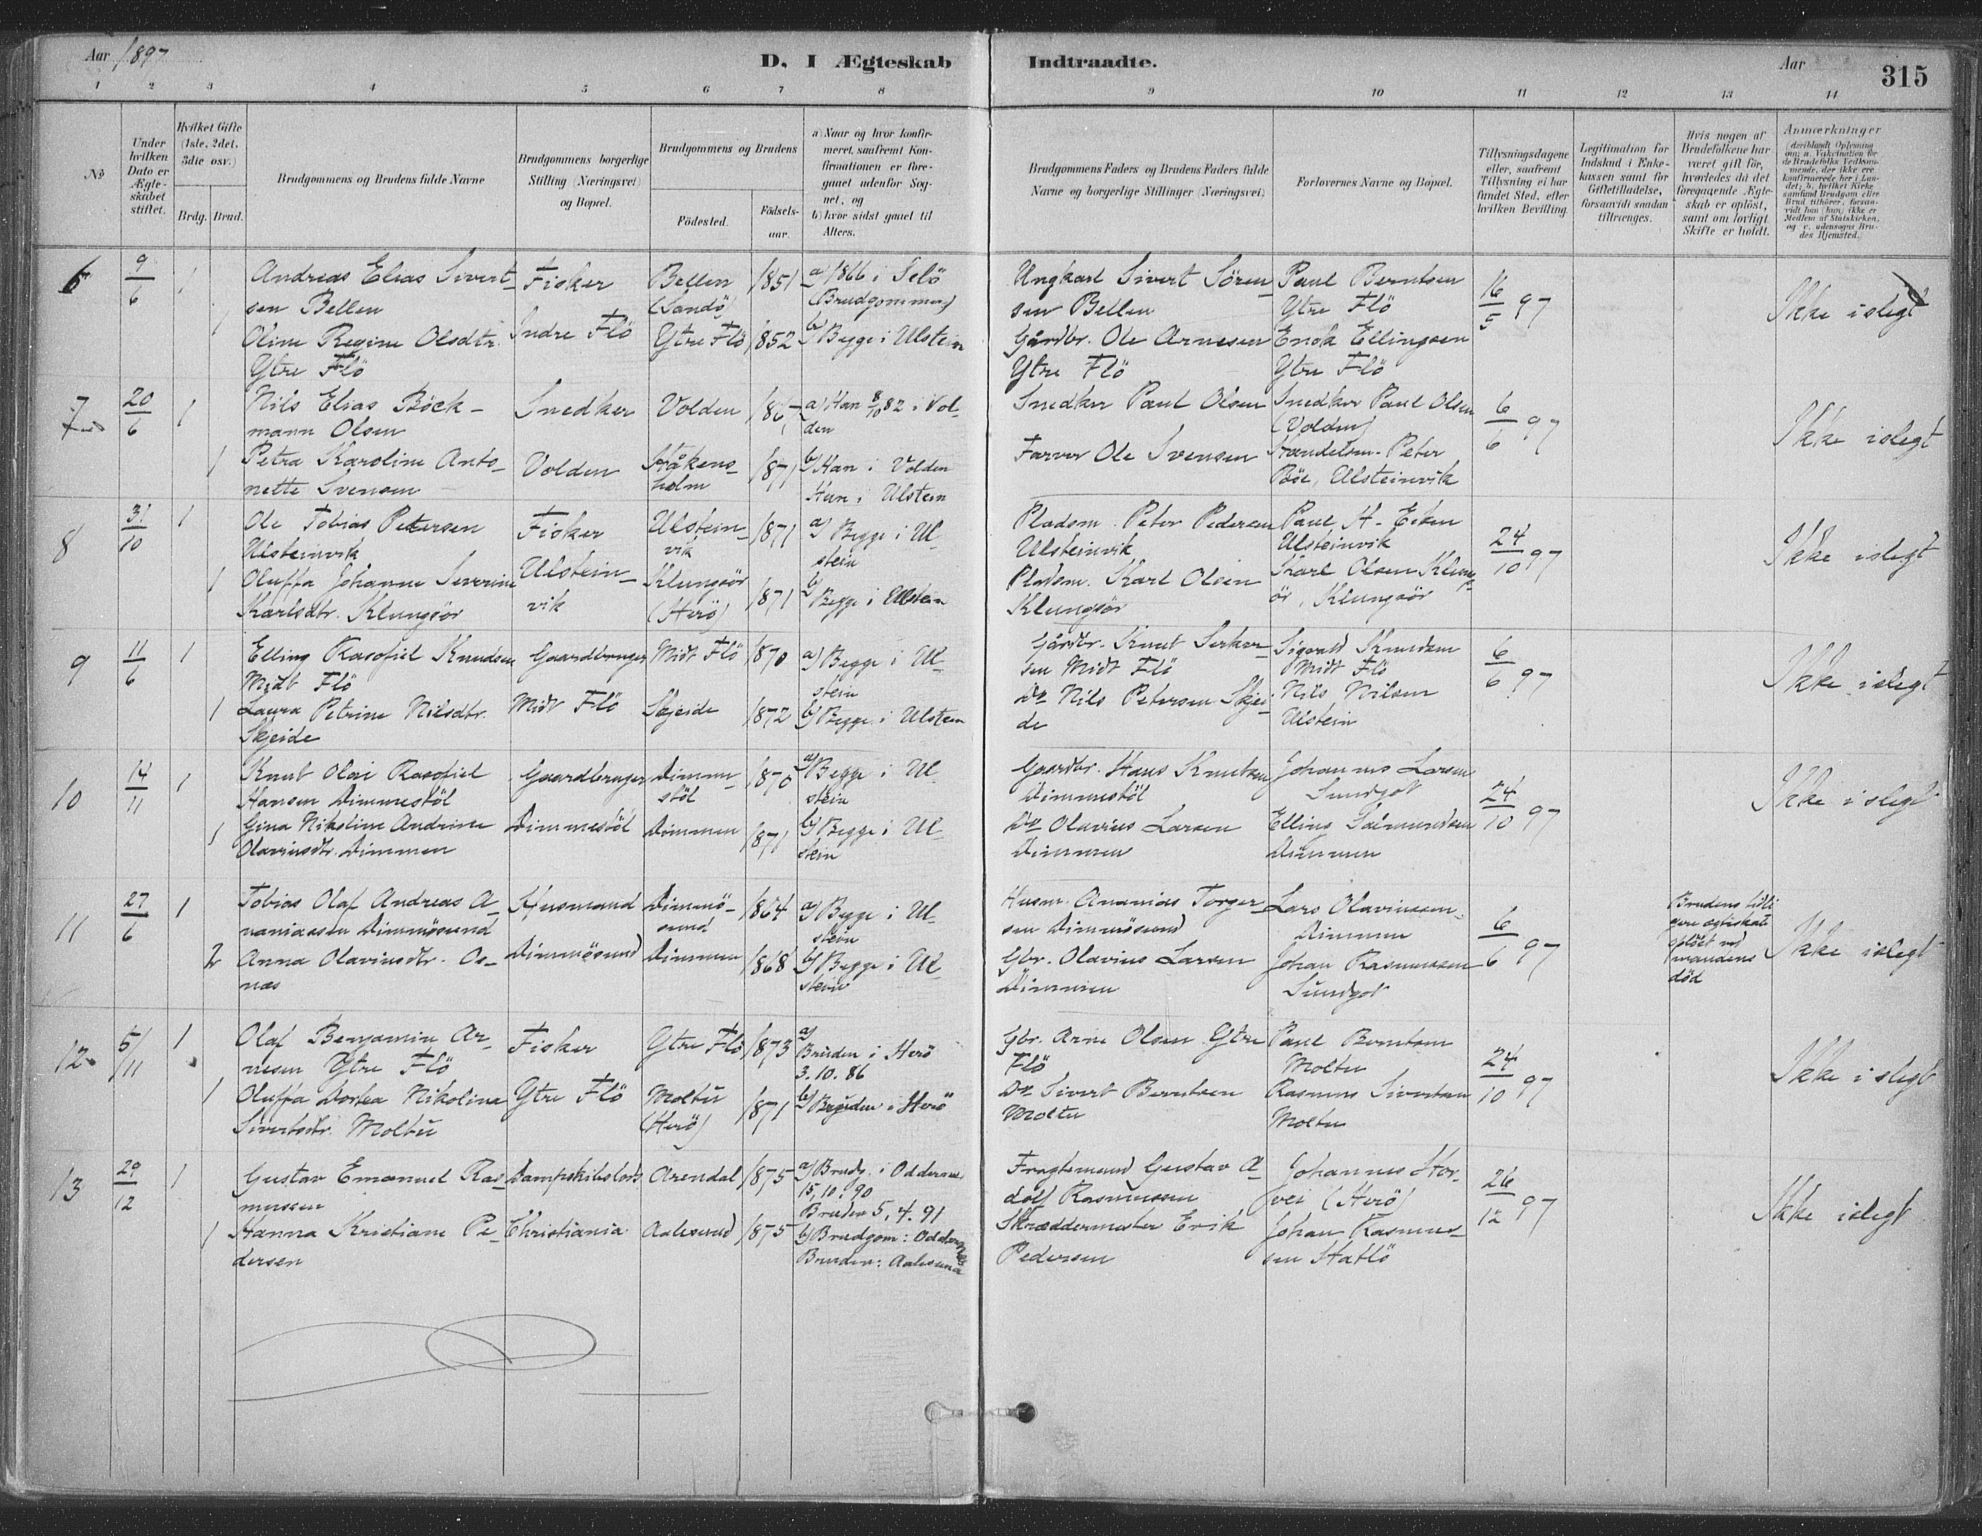 Aar 1897
D. I Ægteskab Indtraadte.
Aar
315
1 2 3 4 5 6 7 8 9 10 11 12 13 14
No
Under hvilken Dato er Ægteskabet stiftet.
Hvilket Gifte (1ste, 2det, 3die osv.)
Brdg. Brud.
Brudgommens og Brudens fulde Navne
Brudgommens borgerlige Stilling (Næringsvei) og Bopæl.
Brudgommens og Brudens
Födested.
Födsels-aar.
a) Naar og hvor konfirmeret, saafremt Konfirmationen er foregaaet udenfor Sognet, og
b) hvor sidst gaaet til Alters.
Brudgommens Faders og Brudens Faders fulde Navne og borgerlige Stillinger (Næringsvei)
Forlovernes Navne og Bopæl.
Tillysningsdagene eller, saafremt Tillysning ei har fundet Sted, efter hvilken Bevilling
Legitimation for Indskud i Enkekassen samt for Giftetilladelse, forsaavidt saadan tiltrænges.
Hvis nogen af Brudefolkene har været gift för, hvorledes da det foregaaende Ægteskab er oplöst, samt om lovligt Skifte er holdt.
Anmærkninger
6 9/6 1
Andreas Elias Sivert-
sen Bellen
1 Oline Regine Olsdtr.
Ytre Flö
Fisker
Indre Flö
Bellen
(Sandö)
Ytre Flö
1851
1852
a) 1866 i Selö
(Brudgommen)
b) Begge i Ulstein
Ungkarl Sivert Sören-
sen Bellen
Gårdbr. Ole Arnesen
Ytre Flö
Paul Berntsen
Ytre Flö
Enok Ellingsen
Ytre Flö
16/5 97
Ikke i slegt
7 20/6 1
Nils Elias Böck-
mann Olsen
1 Petra Karoline Anto-
nette Svensen
Snedker
Volden
Volden
Håkens-
holm
1871
a) Han 8/10 82 i Vol-
den
b) Han i Volden
Hun i Ulstein
Snedker Paul Olsen
Farver Ole Svensen
Snedker Paul Olsen
(Volden)
Handelsm. Peter
Böe, Ulsteinvik
6/6 97
Ikke i slegt
8 31/10 1
Ole Tobias Petersen
Ulsteinvik
1 Oluffa Johanne Severine
Karlsdtr. Klungsör
Fisker
Ulstein-
vik
Ulstein-
vik
Klungsör
(Herö)
1871
1871
a) Begge i Ul-
stein
b) Begge i Ulstein
Pladsm. Peter Pedersen
Ulsteinvik
Pladsm. Karl Olsen
Klungsör
Paul H. Eiken
Ulsteinvik
Karl Olsen Klungs-
ör, Klungsör
24/10 97
Ikke i slegt
9 11/6 1
Elling Rasofiel Knudsen
Midt Flö
1 Laura Petrine Nilsdtr.
Skeide
Gaardbruger
Midt Flö
Midt Flö
Skjeide
1870
1872
a) Begge i Ul-
stein
b) Begge i Ulstein
Gårdbr. Knut
sen Midt Flö
Do Nils Petersen Skjei-
de
Sigvald Knudsen
Midt Flö
Nils Nilsen
Ulstein
6/6 97
Ikke i slegt
10 14/11 1
Knut Olai Rasofiel
Hansen Dimmestöl
1 Gina Nikoline Andrine
Olavinsdtr. Dimmen
Gaardbruger
Dimmestöl
Dimme-
stöl
Dimmen
1870
1871
a) Begge i Ul-
stein
b) Begge i Ul-
stein
Gaardbr. Hans Knutsen
Dimmestöl
Do Olavius Larsen
Dimmen
Johannes Larsen
Sundgot
Elling Salmundsen
Dimmen
24/10 97
Ikke i slegt
11 27/6 1
Tobias Olaf Andreas A-
naniassen Dimmösund
2 Anna Olavinsdtr. Os-
næs
Husmand
Dimmösund
Dimmö-
sund
Dimmen
1864
1868
a) Begge i Ul-
stein
b) Begge i Ul-
stein
Husm. Ananias Torger-
sen Dimmösund
Gbr. Olavius Larsen
Dimmen
Lars Olavinssen
Dimmen
Johan Rasmussen
Sundgot
6/6 97
Brudens tidli-
gere egteskab
oplöst ved
mandens
död
Ikke i slegt
12 5/11 1
Olaf Benjamin Ar-
nesen Ytre Flö
1 Oluffa Dortea Nikolina
Sivertsdtr. Moltu
Fisker
Ytre Flö
Ytre Flö
Moltu
(Herö)
1873
1871
a)
Bruden i Herö
3.10.86
b) Bruden i Herö
Gbr. Arne Olsen Ytre
Flö
Do Sivert Berntsen
Moltu
Paul Berntsen
Moltu
Rasmus Sivertsen
Moltu
24/10 97
Ikke i slegt
13 29/12 1
Gustav Emanuel Ras-
mussen
1 Hanna Kristiane Pe-
dersen
Dampskibslods
Christiania
Arendal
Aalesund
1875
1875
a) Brudg. i Oddernes
15.10.90
Bruden 5.4.91
b) Brudgom: Oddernes
Bruden: Aalesund
Fragtemand Gustav A-
dolf Rasmussen
Skræddermester Erik
Pedersen
Johannes Stor-
(Herö)
Johan Rasmus-
sen Hatlö
26/12 97
Ikke i slegt